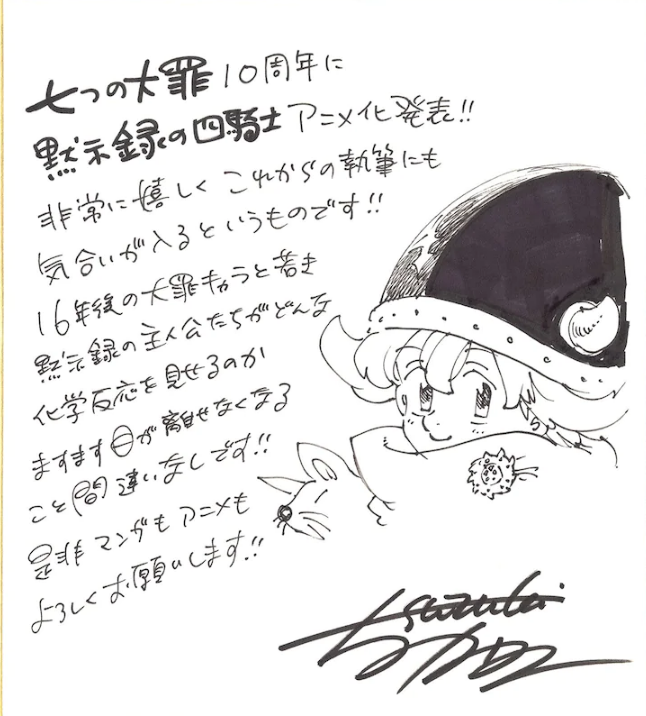 七つの大罪10周年に
黙示録の四騎士アニメ化発表!!
非常に嬉しくこれからの執筆にも
気合いが入るというものです!!
16年後の大罪キャラと若き
黙示録の主人公たちがどんな
化学反応を見せるのか
ますます目が離せなくなる
こと間違いなしです!!
是非マンガもアニメも
よろしくお願いします!!
suzuki